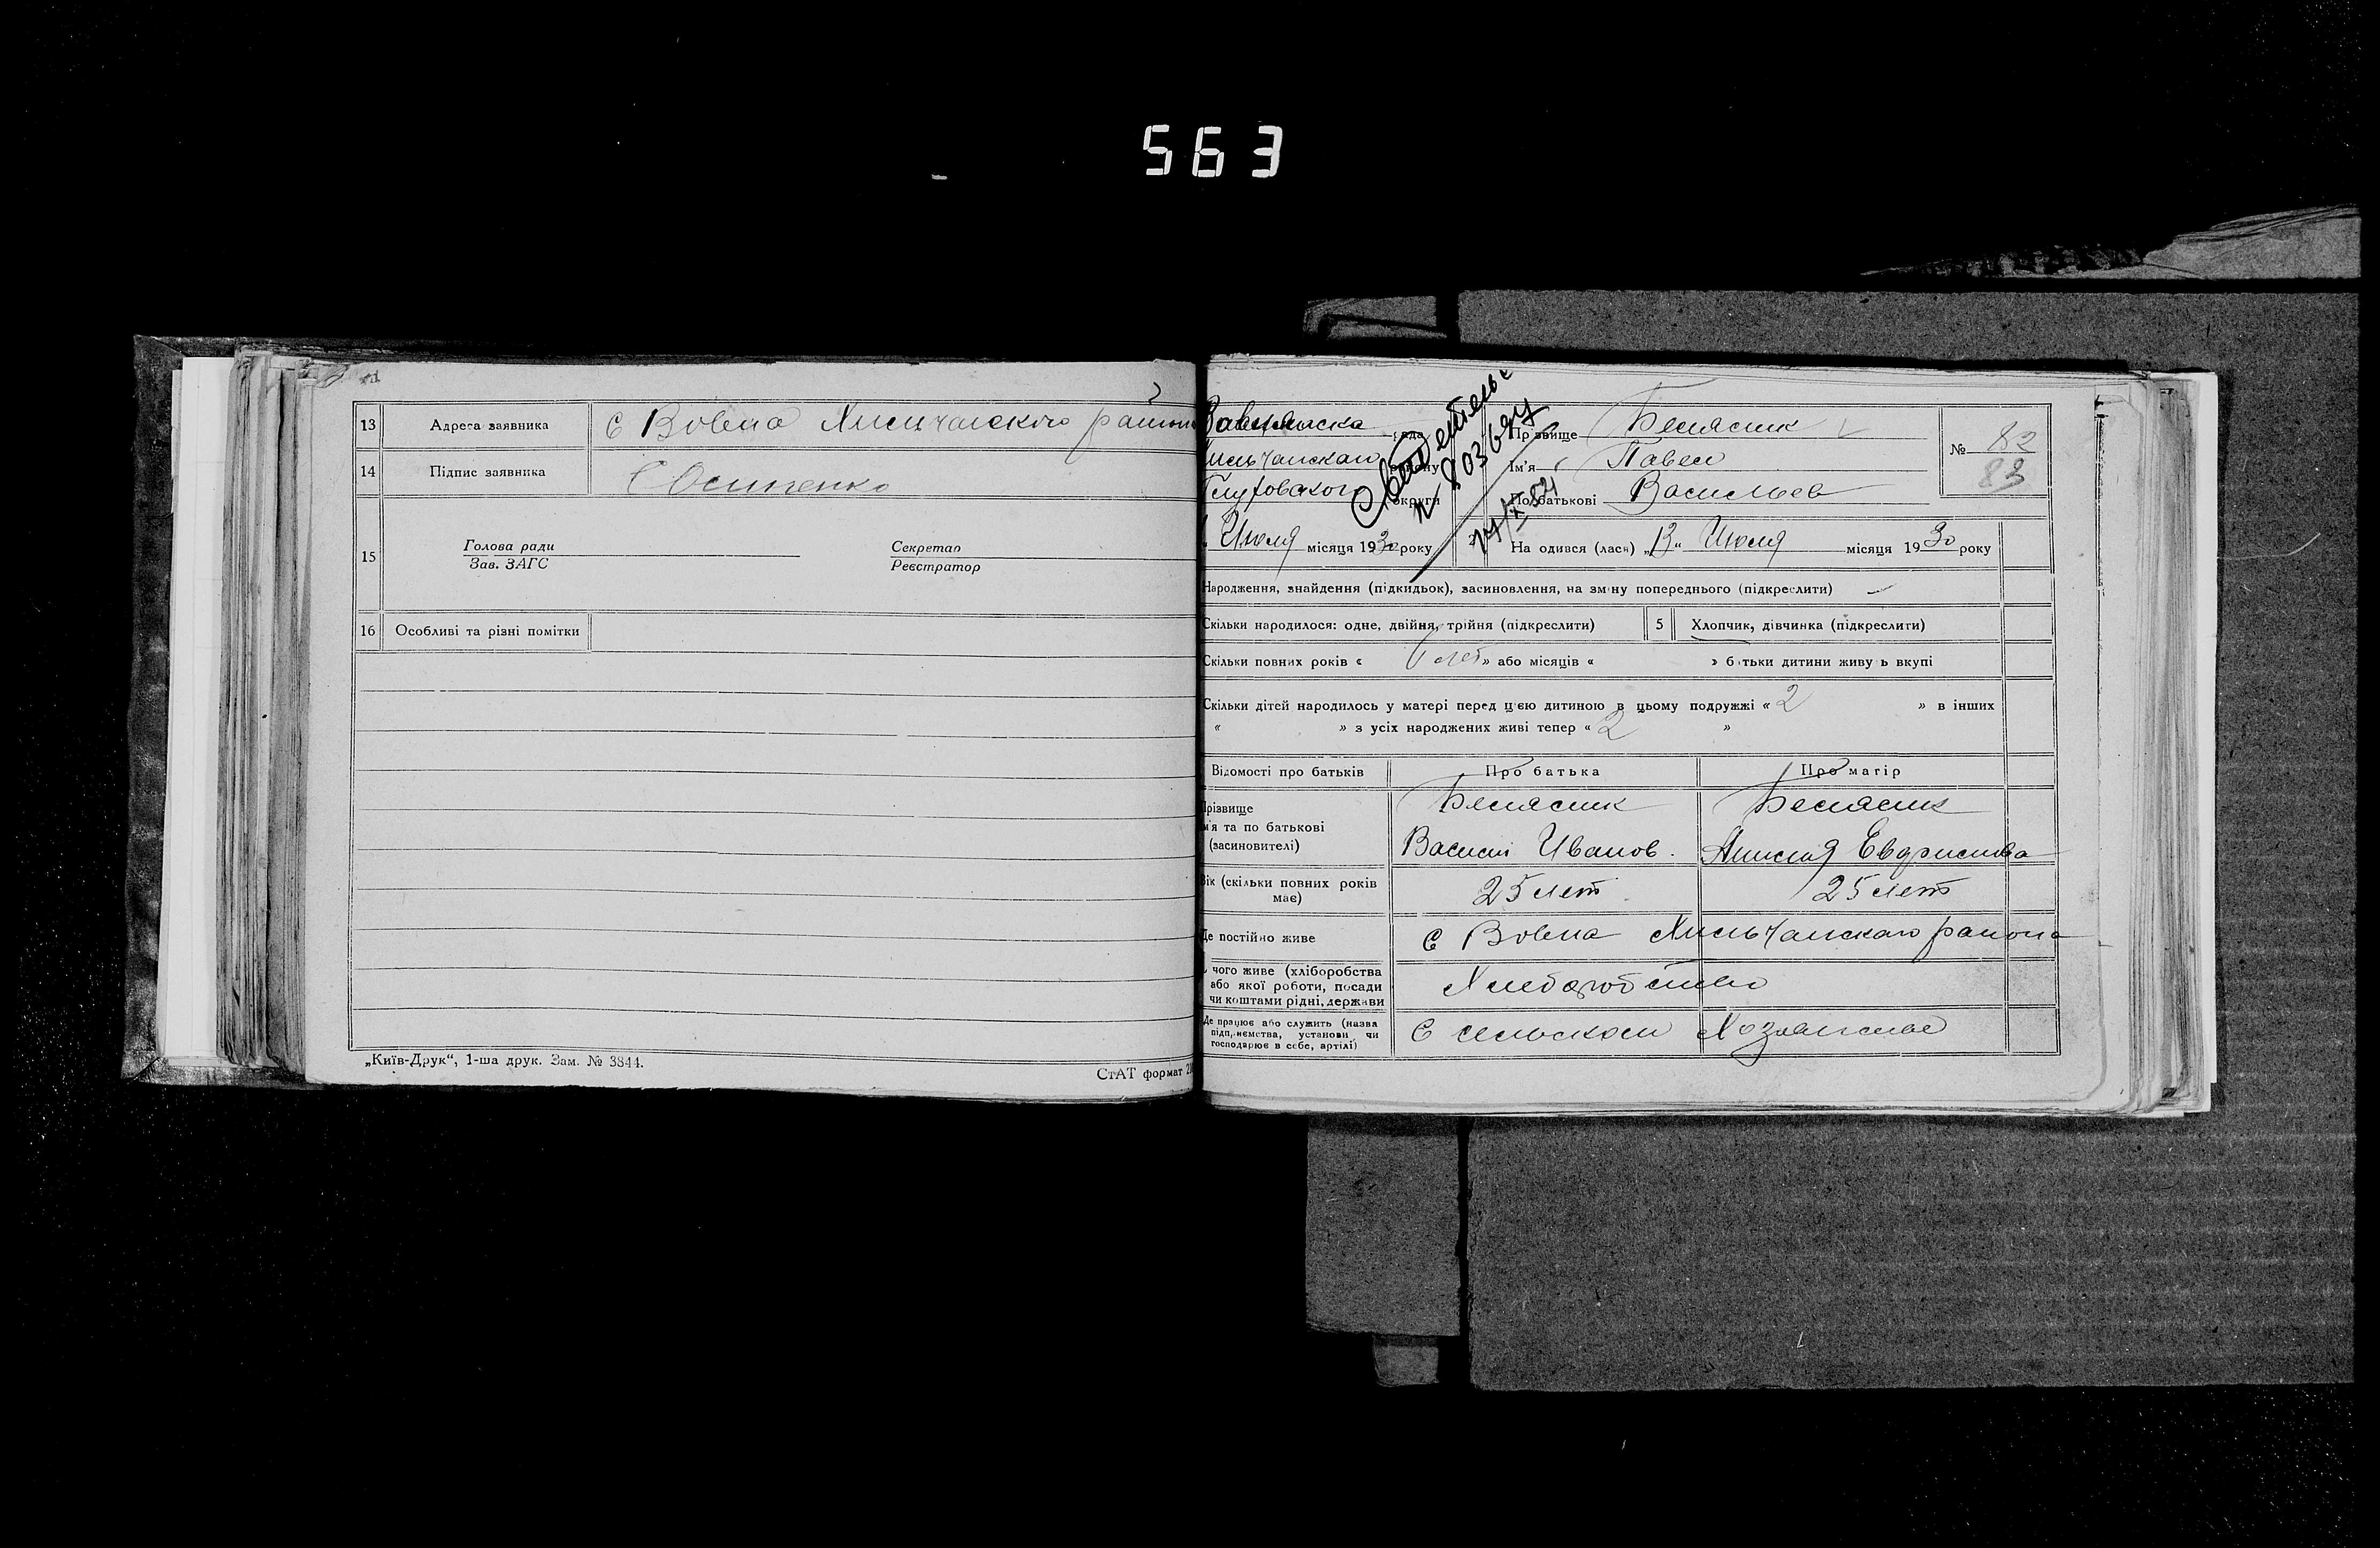 563
13 Адреса заявника с Вовна Хильчанского района
14 Підпис заявника Осипенко
15 Голова ради Секретар
Зав. ЗАГС Реєстратор
16 Особливі та різні помітки
„Київ-Друк“, 1-ша друк. Зам. № 3844.
СтАТ формат
ради
району
Глуховского округи
Июля місяця 1930 року
Прізвище
Ім'я Павел
По батькові Васильев
№ 82
83
На одився (лася) „13“ Июля місяця 1930 року
Народження, знайдення (підкидьок), засиновлення, на зміну попереднього (підкреслити)
Скільки народилося: одне, двійня, трійня (підкреслити) 5 Хлопчик, дівчинка (підкреслити)
Скільки повних років « 6 лет » або місяців « » батьки дитини живуть вкупі
Скільки дітей народилось у матері перед цією дитиною в цьому подружжі « 2 » в інших
« » з усіх народжених живі тепер « 2 »
Відомості про батьків Про батька Про матір
Прізвище
ім'я та по батькові
(засновителі) Василий Иванов.
Вік (скільки повних років має) 25 лет 25 лет
Де постійно живе с Вовна Хильчанского района
чого живе (хліборобства
або якої роботи, посади
чи коштами рідні, держави Хлеборобство
Де працює або служить (назва
підприємства, установи чи
господарює в себе, артілі) В сельском Хозяистве